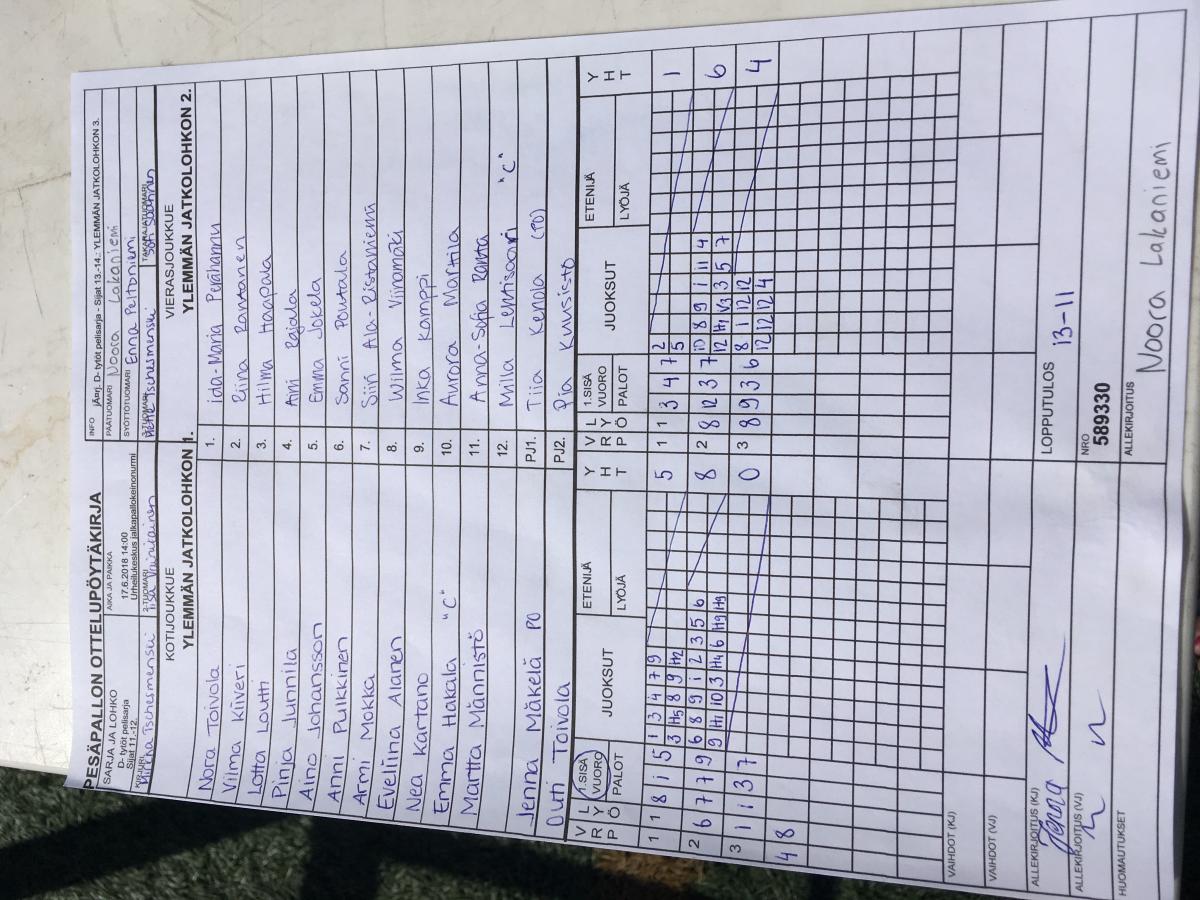 PESÄPALLON OTTELUPÖYTÄKIRJA
SARJA JA LOHKO
D- tytöt pelisarja
Sijat 11.-12.
AIKA JA PAIKKA
17.6.2018 14:00
Urheilukeskus jalkapallokeinonurmi
INFO
jäprj. D- tytöt pelisarja - Sijat 13.-14.: YLEMMÄN JATKOLOHKON 3.
PÄÄTUOMARI Noora Lakaniemi
SYÖTTÖTUOMARI Enna Peltoniemi
2-TUOMARI
3-TUOMARI
TAKARAJATUOMARI
KOTIJOUKKUE
YLEMMÄN JATKOLOHKON 1.
VIERASJOUKKUE
YLEMMÄN JATKOLOHKON 2.
Nora Toivola 1. Iida-Maria Perähannu
Vilma Kiiveri 2. Riina Rantanen
Lotta Loutti 3. Hilma Haapala
Pinja Junnila 4. Aini Rajala
Aino Johansson 5. Emma Jokela
Anni Pulkkinen 6. Sanni Poutala
Armi Mokka 7. Siiri Ala-Ristaniemi
Eveliina Alanen 8. Wilma Viinamäki
Nea Kartano 9. Inka Kamppi
Emma Hakala "C" 10. Aurora Marttila
Martta Männistö 11. Anna-Sofia Ranta
12. Milla Lentisaari "C"
Jenna Mäkelä PO PJ1. Tiia Kenola (PÖ)
Outi Toivola PJ2. Pia Kuusisto
V R P L Y Ö 1.SISÄ VUORO PALOT JUOKSUT ETENIJÄ LYÖJÄ Y H T V R P L Y Ö 1.SISÄ VUORO PALOT JUOKSUT ETENIJÄ LYÖJÄ Y H T
1 1 8 1 5 1 3 4 7 9 5 1 1 3 4 7 2 1
3 H5 8 9 H2 5
2 6 7 7 9 6 8 9 1 2 3 5 6 8 2 8 12 3 7 10 8 9 1 11 4 6
9 H1 10 3 H4 6 H9 H9 12 H1 V3 3 5 7
3 1 1 3 7 0 3 8 9 3 6 8 1 12 12 4
12 12 12 4
4 8
VAIHDOT (KJ)
VAIHDOT (VJ)
ALLEKIRJOITUS (KJ) Jenna
LOPPUTULOS 13-11
ALLEKIRJOITUS (VJ)
NRO
589330
HUOMAUTUKSET
ALLEKIRJOITUS
Noora Lakaniemi